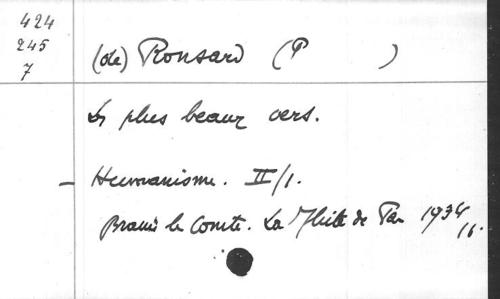 424
245
7
(de) Ronsard (P )
Les plus beaux vers.
- Humanisme. II/1.
Braine le Comte. La de 1934
16.